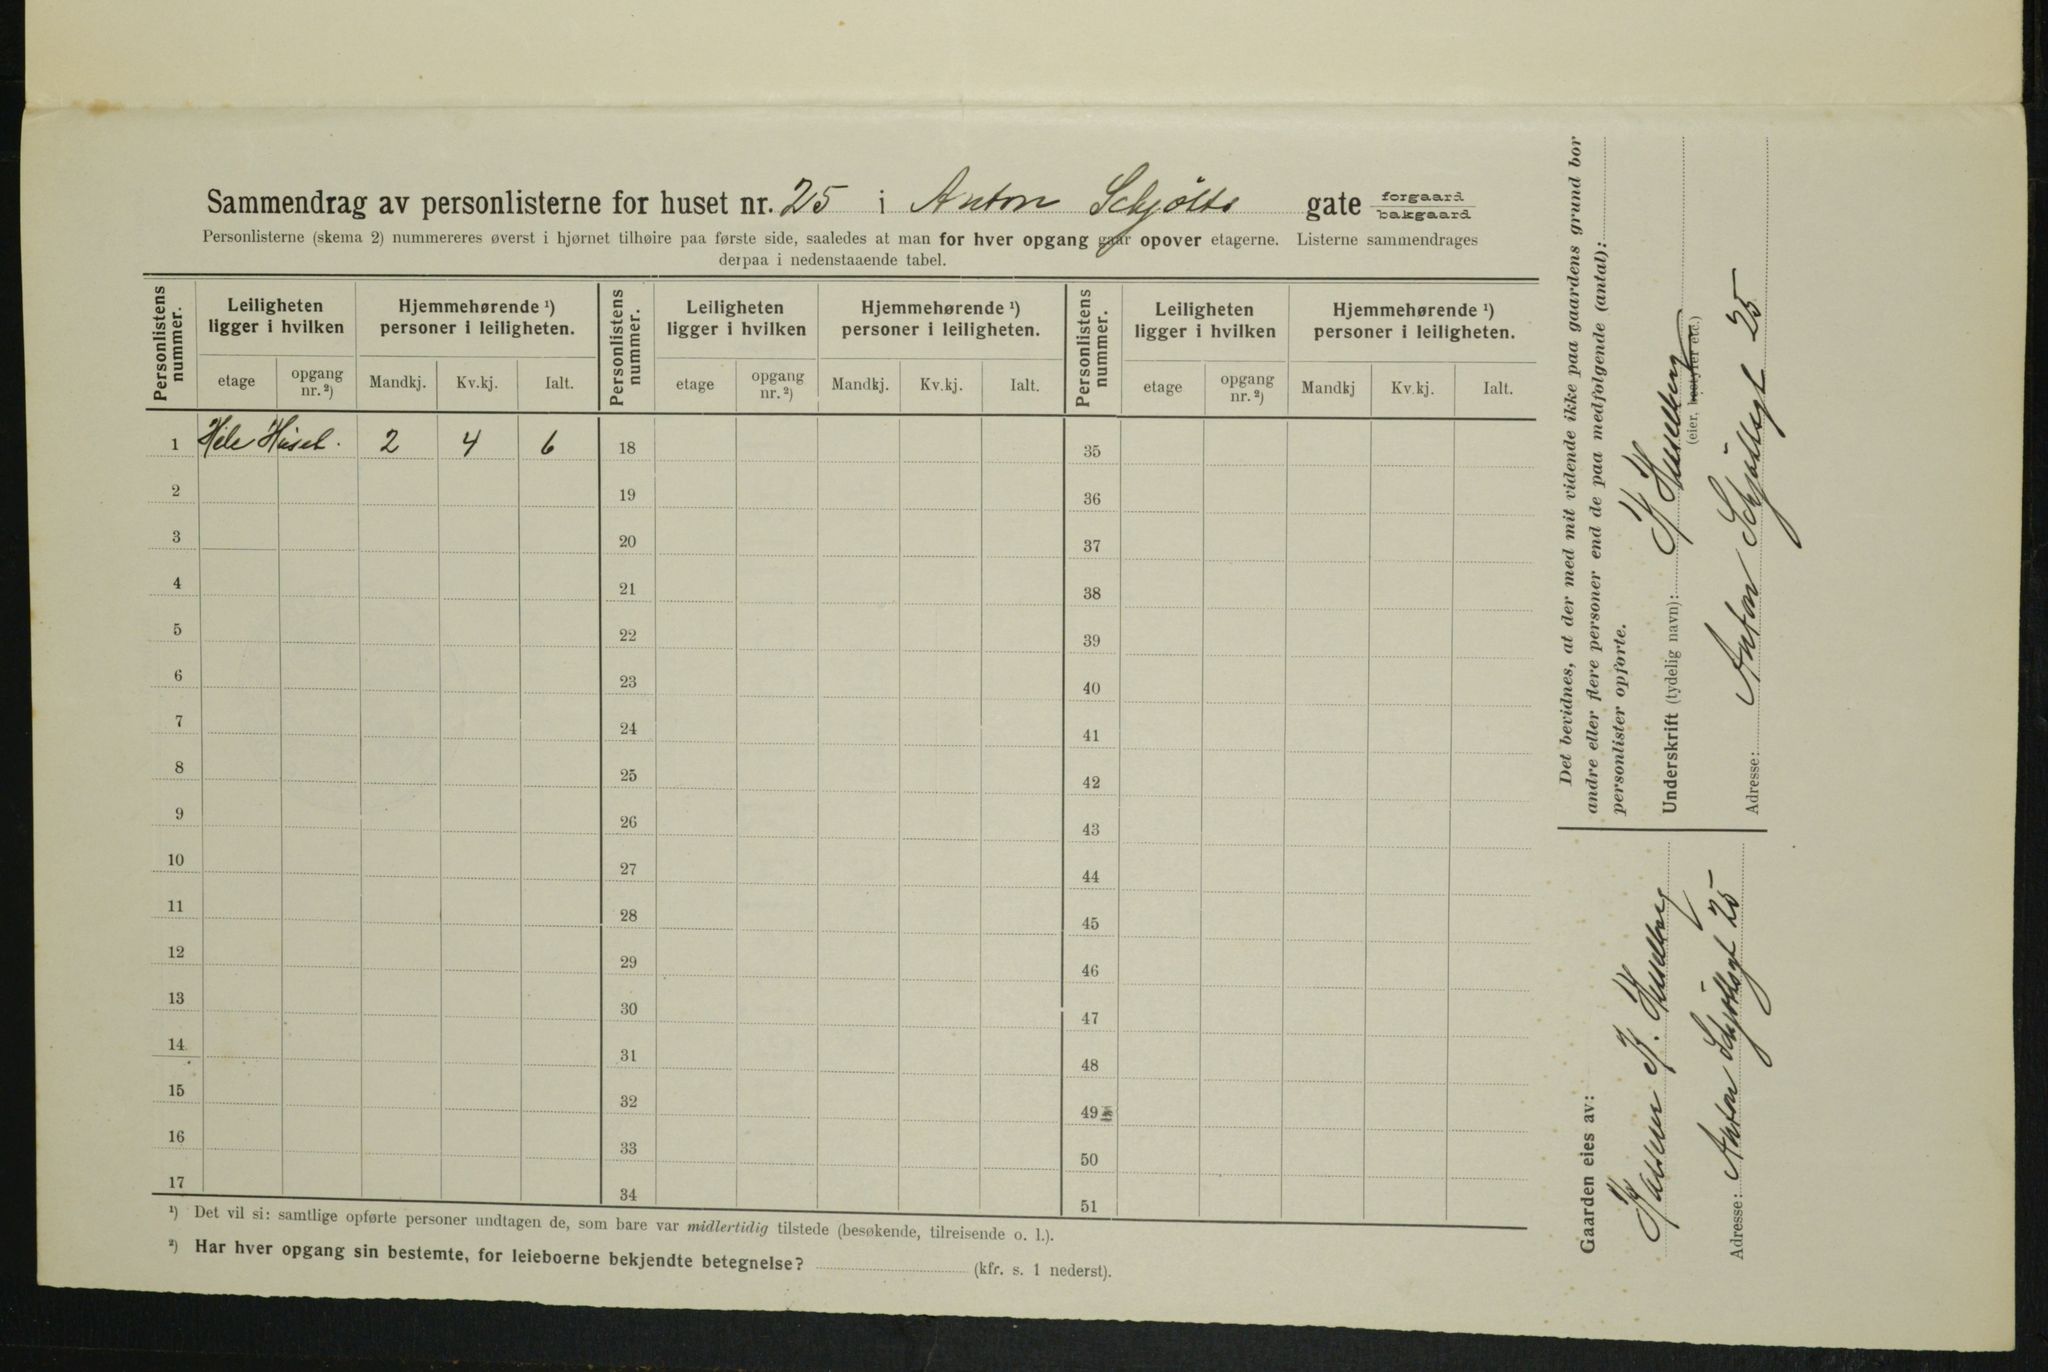 Sammendrag av personlisterne for huset nr. 25 i Anton Schjølts gate forgaard bakgaard
Personlisterne (skema 2) nummereres øverst i hjørnet tilhøire paa første side, saaledes at man for hver opgang gaar opover etagerne. Listerne sammendrages
derpaa i nedenstaaende tabel.
Personlistens nummer. Leiligheten ligger i hvilken Hjemmehørende ¹) personer i leiligheten. Personlistens nummer. Leiligheten ligger i hvilken Hjemmehørende ¹) personer i leiligheten. Personlistens nummer. Leiligheten ligger i hvilken Hjemmehørende ¹) personer i leiligheten.
etage opgang nr. ²) Mandkj. Kv.kj. Ialt. etage opgang nr. ²) Mandkj. Kv.kj. Ialt. etage opgang nr. ²) Mandkj Kv.kj. Ialt.
1 Hele Huset. 2 4 6 18 35
2 19 36
3 20 37
4 21 38
5 22 39
6 23 40
7 24 41
8 25 42
9 26 43
10 27 44
11 28 45
12 29 46
13 30 47
14 31 48
15 32 49
16 33 50
17 34 51
¹) Det vil si: samtlige opførte personer undtagen de, som bare var midlertidig tilstede (besøkende, tilreisende o. l.).
²) Har hver opgang sin bestemte, for leieboerne bekjendte betegnelse? (kfr. s. 1 nederst).
Det bevidnes, at der med mit vidende ikke paa gaardens grund bor
andre eller flere personer end de paa medfølgende (antal):
personlister opførte.
Underskrift (tydelig navn): K Husebery
(eier, bestyrer etc.)
Adresse: Anton Schjøltsgt 25
Gaarden eies av:
K. Huseberg
Adresse: Anton Schjøltsgt 25